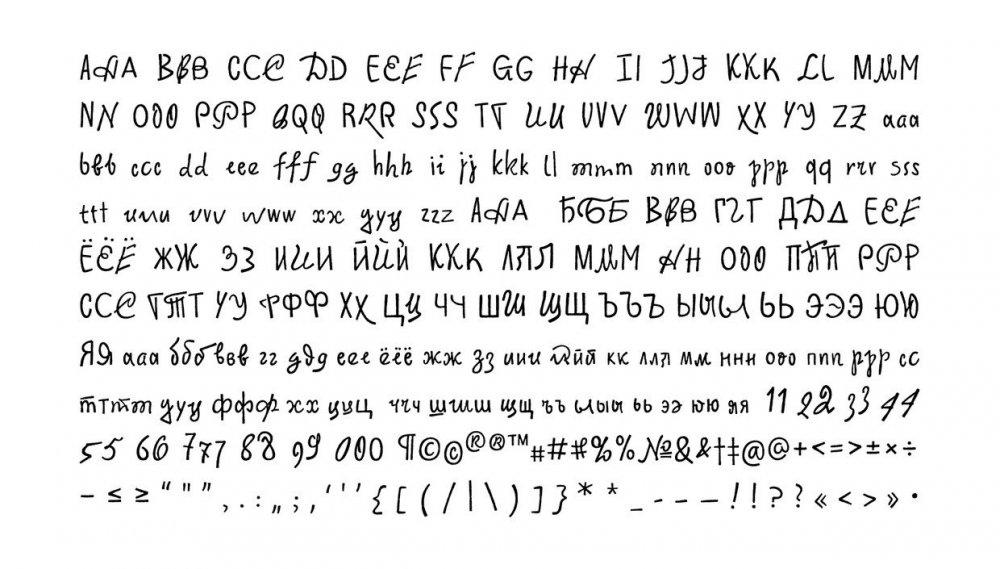 AAA BBB CCC DD EEE FF GG HH II JJJ KKK LL MMM
NN OOO PPP QQQ RRR SSS TT UU VVV WWW XX YY ZZ aaa
bbb ccc dd eee fff gg hhh ii jj kkk ll mmm nnn ooo ppp qq rrr sss
ttt uuu vvv www xx yyy zzz ААА БББ ВВВ ГГГ ДДД ЕЕЕ
ЁЁЁ ЖЖ ЗЗ ИИИ ЙЙЙ ККК ЛЛЛ МММ НН ООО ППП РРР
ССС ТТТ УУ ФФФ ХХ ЦЦ ЧЧ ШШ ЩЩ ЪЪЪ ЫЫЫ ЬЬ ЭЭЭ ЮЮ
ЯЯ ааа ббб ввв гг ддд еее ёёё жж ззз иии ййй кк ллл мм ннн ооо ппп ррр сс
тттт ууу ффф хх ццц ччч шшш щщ ъъ ыыы ьь ээ юю яя 11 222 33 44
55 66 777 88 99 000 ¶©©®®™###%%№&&†‡@@+<=>±×÷
−≤≥“"”,.:„;,‘'’{[(/|\)]}**_-–—!!??«<>»•